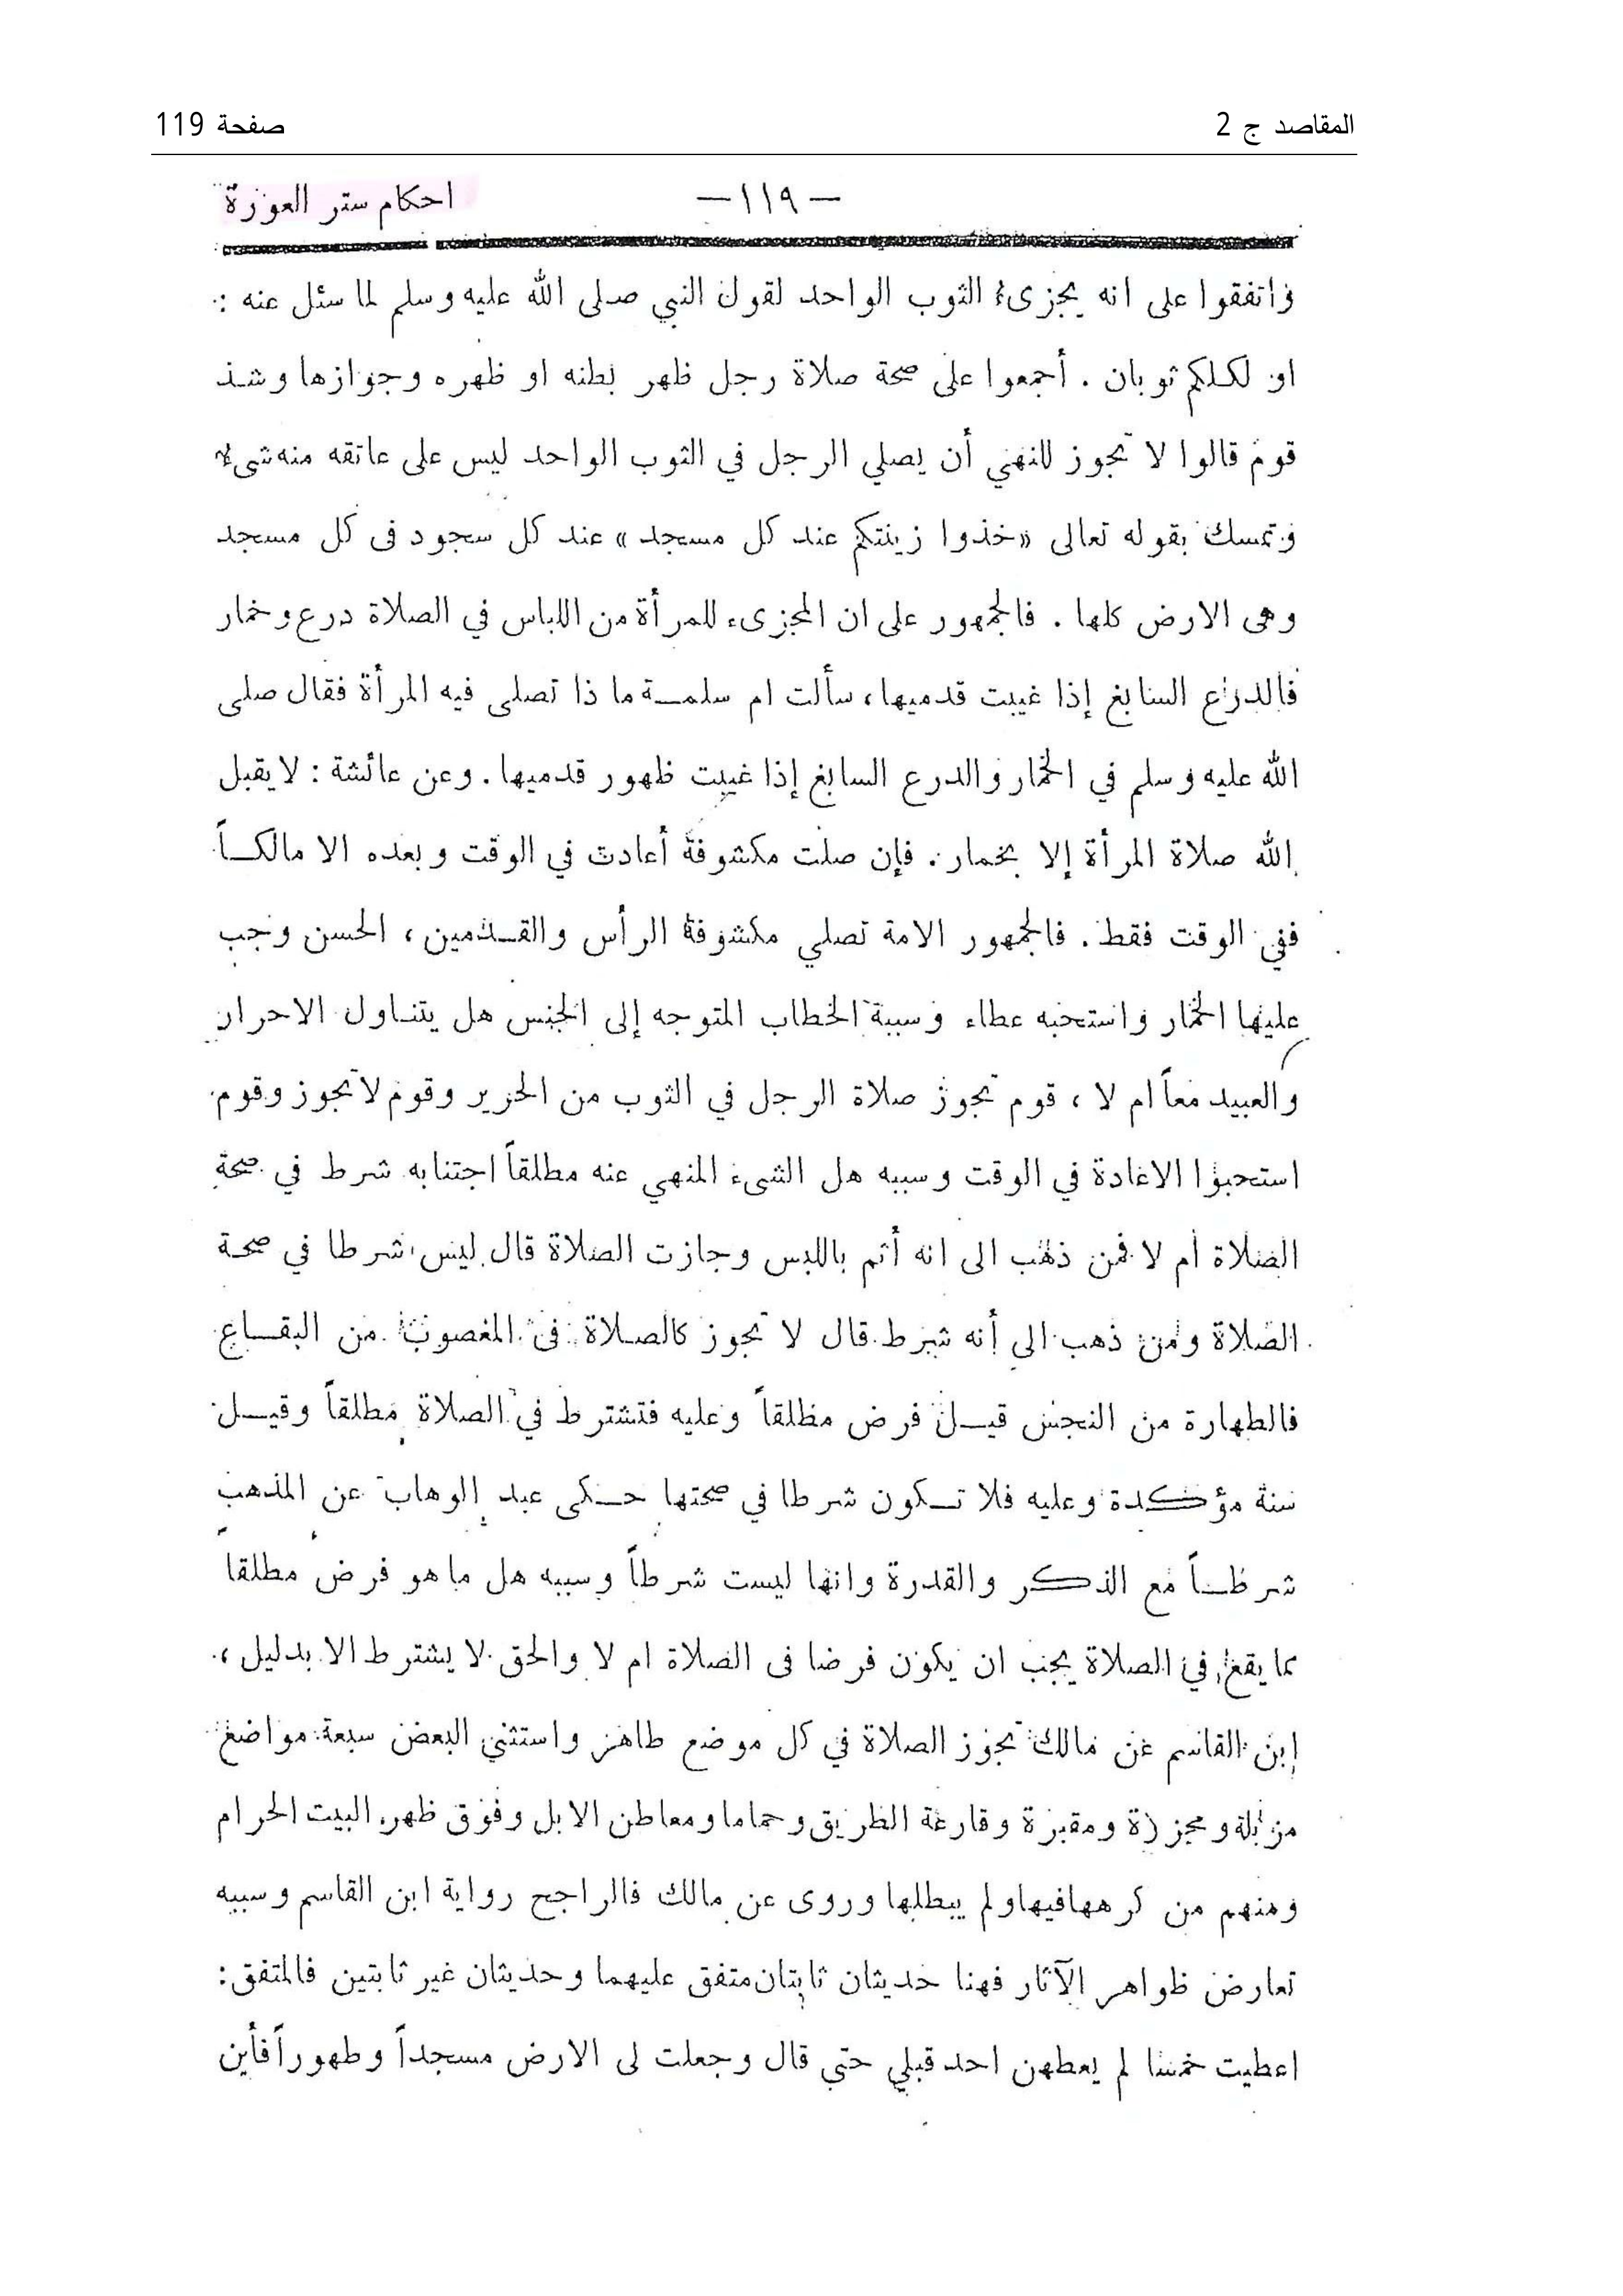 المقاصد ج 2
صفحة 119
— ١١٩ —
احكام ستر العورة
واتفقوا على انه يجزىء الثوب الواحد لقول النبي صلى الله عليه وسلم لما سئل عنه :
او لكلكم ثوبان . أجمعوا على صحة صلاة رجل ظهر بطنه او ظهره وجوازها وشذ
قوم قالوا لا تجوز للنهي أن يصلي الرجل في الثوب الواحد ليس على عاتقه منه شىء
وتمسك بقوله تعالى « خذوا زينتكم عند كل مسجد » عند كل سجود فى كل مسجد
وهى الارض كلها . فالجمهور على ان المجزىء للمرأة من اللباس في الصلاة درع وخمار
فالدرع السابغ إذا غيبت قدميها ، سألت ام سلمة ما ذا تصلى فيه المرأة فقال صلى
الله عليه وسلم في الخمار والدرع السابغ إذا غيبت ظهور قدميها . وعن عائشة : لا يقبل
الله صلاة المرأة إلا بخمار . فإن صلت مكشوفة أعادت في الوقت وبعده الا مالكاً
ففي الوقت فقط . فالجمهور الامة تصلي مكشوفة الرأس والقدمين ، الحسن وجب
عليها الخمار واستحبه عطاء وسببة الخطاب المتوجه إلى الجنس هل يتناول الاحرار
والعبيد معاً ام لا ، قوم تجوز صلاة الرجل في الثوب من الحرير وقوم لا تجوز وقوم
استحبوا الاعادة في الوقت وسببه هل الشىء المنهي عنه مطلقاً اجتنابه شرط في صحة
الصلاة أم لا فمن ذهب الى انه أثم باللبس وجازت الصلاة قال ليس شرطا في صحة
الصلاة ومن ذهب الى أنه شرط قال لا تجوز كالصلاة فى المغصوب من البقاع
فالطهارة من النجس قيل فرض مطلقاً وعليه فتشترط في الصلاة مطلقاً وقيل
سنة مؤكدة وعليه فلا تكون شرطا في صحتها حكى عبد الوهاب عن المذهب
شرطاً مع الذكر والقدرة وانها ليست شرطاً وسببه هل ما هو فرض مطلقا
مما يقع في الصلاة يجب ان يكون فرضا فى الصلاة ام لا والحق لا يشترط الا بدليل ،
إبن القاسم عن مالك تجوز الصلاة في كل موضع طاهر واستثني البعض سبعة مواضع
مزبلة ومجزرة ومقبرة وقارعة الطريق وحماما ومعاطن الابل وفوق ظهر البيت الحرام
ومنهم من كرهها فيها ولم يبطلها وروى عن مالك فالراجح رواية ابن القاسم وسببه
تعارض ظواهر الآثار فهنا حديثان ثابتان متفق عليهما وحديثان غير ثابتين فالمتفق :
اعطيت خمسا لم يعطهن احد قبلي حتي قال وجعلت لى الارض مسجداً وطهوراً فأين